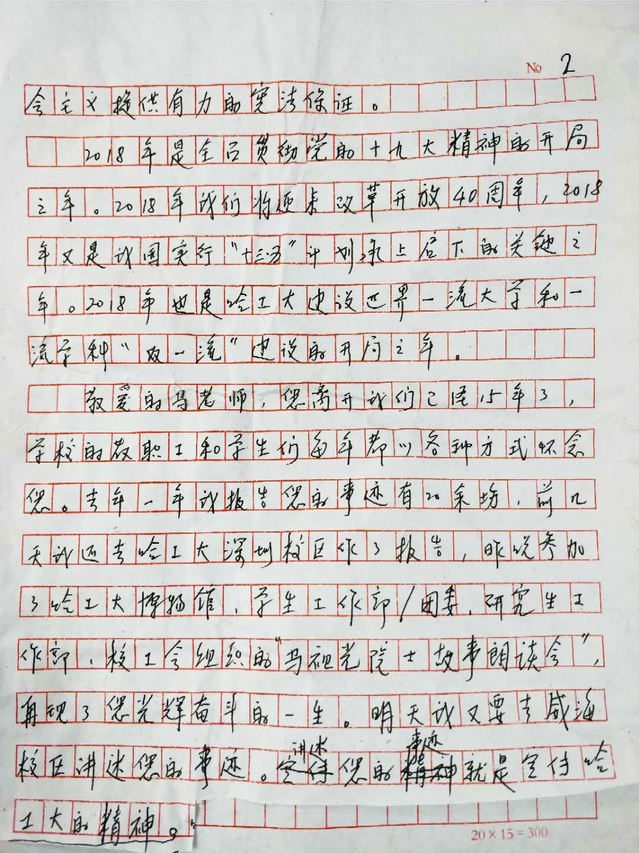 No 2
会主义提供有力的宪法保证。
2018年是全面贯彻党的十九大精神的开局
之年。2018年我们将迎来改革开放40周年，2018
年又是我国实行“十三五”计划承上启下的关键之
年。2018年也是哈工大建设世界一流大学和一
流学科“双一流”建设的开局之年。
敬爱的马老师，您离开我们已经15年了，
学校的教职工和学生们每年都以各种方式怀念
您。去年一年我报告您的事迹有20余场，前几
天我还去哈工大深圳校区作了报告，昨晚参加
了哈工大博物馆、学生工作部/团委、研究生工
作部、校工会组织的“马祖光院士故事朗读会”，
再现了您光辉奋斗的一生。明天我又要去威海
讲述 事迹
校区讲述您的事迹。宣传您的精神就是宣传哈
工大的精神。
20×15=300